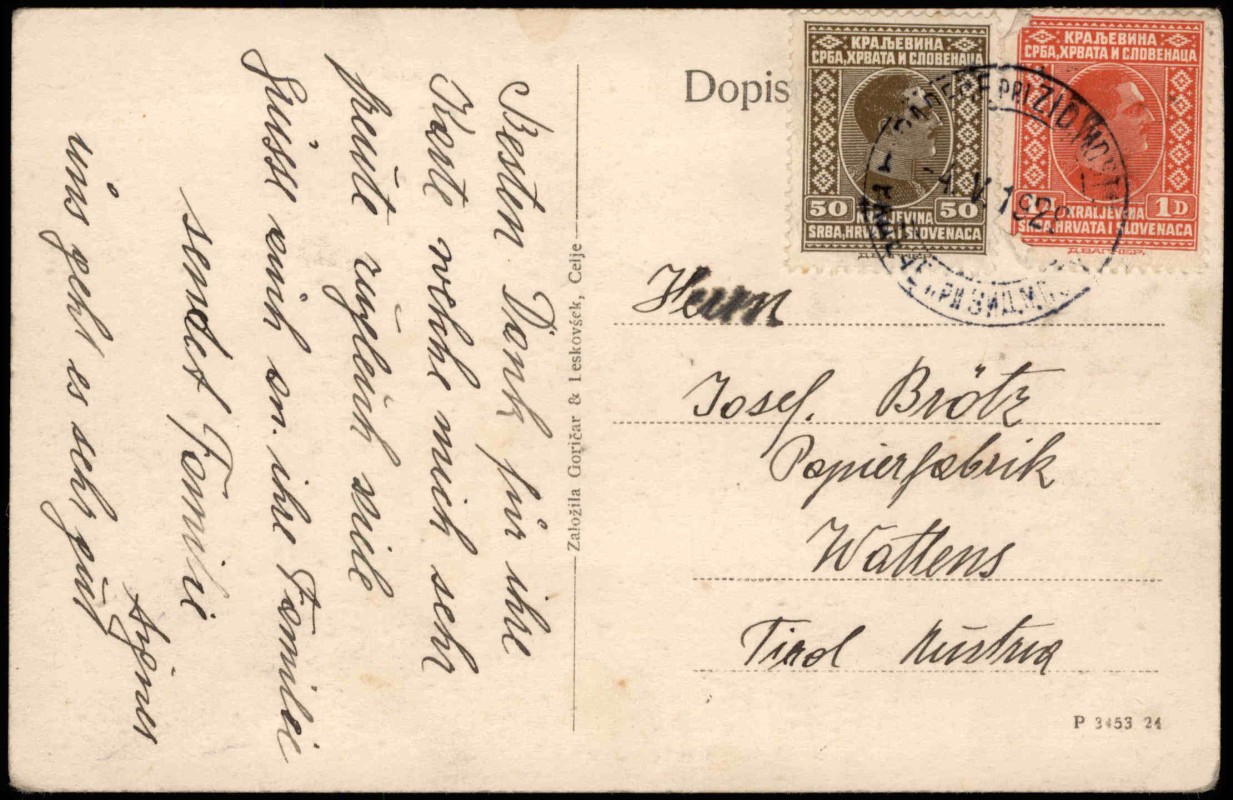 Dopis
КРАЉЕВИНА
СРБА, ХРВАТА И СЛОВЕНАЦА
50 KRALJEVINA 50
SRBA, HRVATA I SLOVENACA
КРАЉЕВИНА
СРБА, ХРВАТА И СЛОВЕНАЦА
KRALJEVINA 1D
SRBA, HRVATA I SLOVENACA
PRI ZID. MOSTU
V. 192
ПРИ ЗИД. М
Besten Dank für ihre
Karte welche mich sehr
freute zugleich viele
Grüsse euich sm. ihre Familie
sendet Familie
Aginer
uns geht es sehr gut
Založila Goričar & Leskovšek, Celje
Herrn
Josef. Brötz
Papierfabrik
Wattens
Tirol Austria
P 3453 24